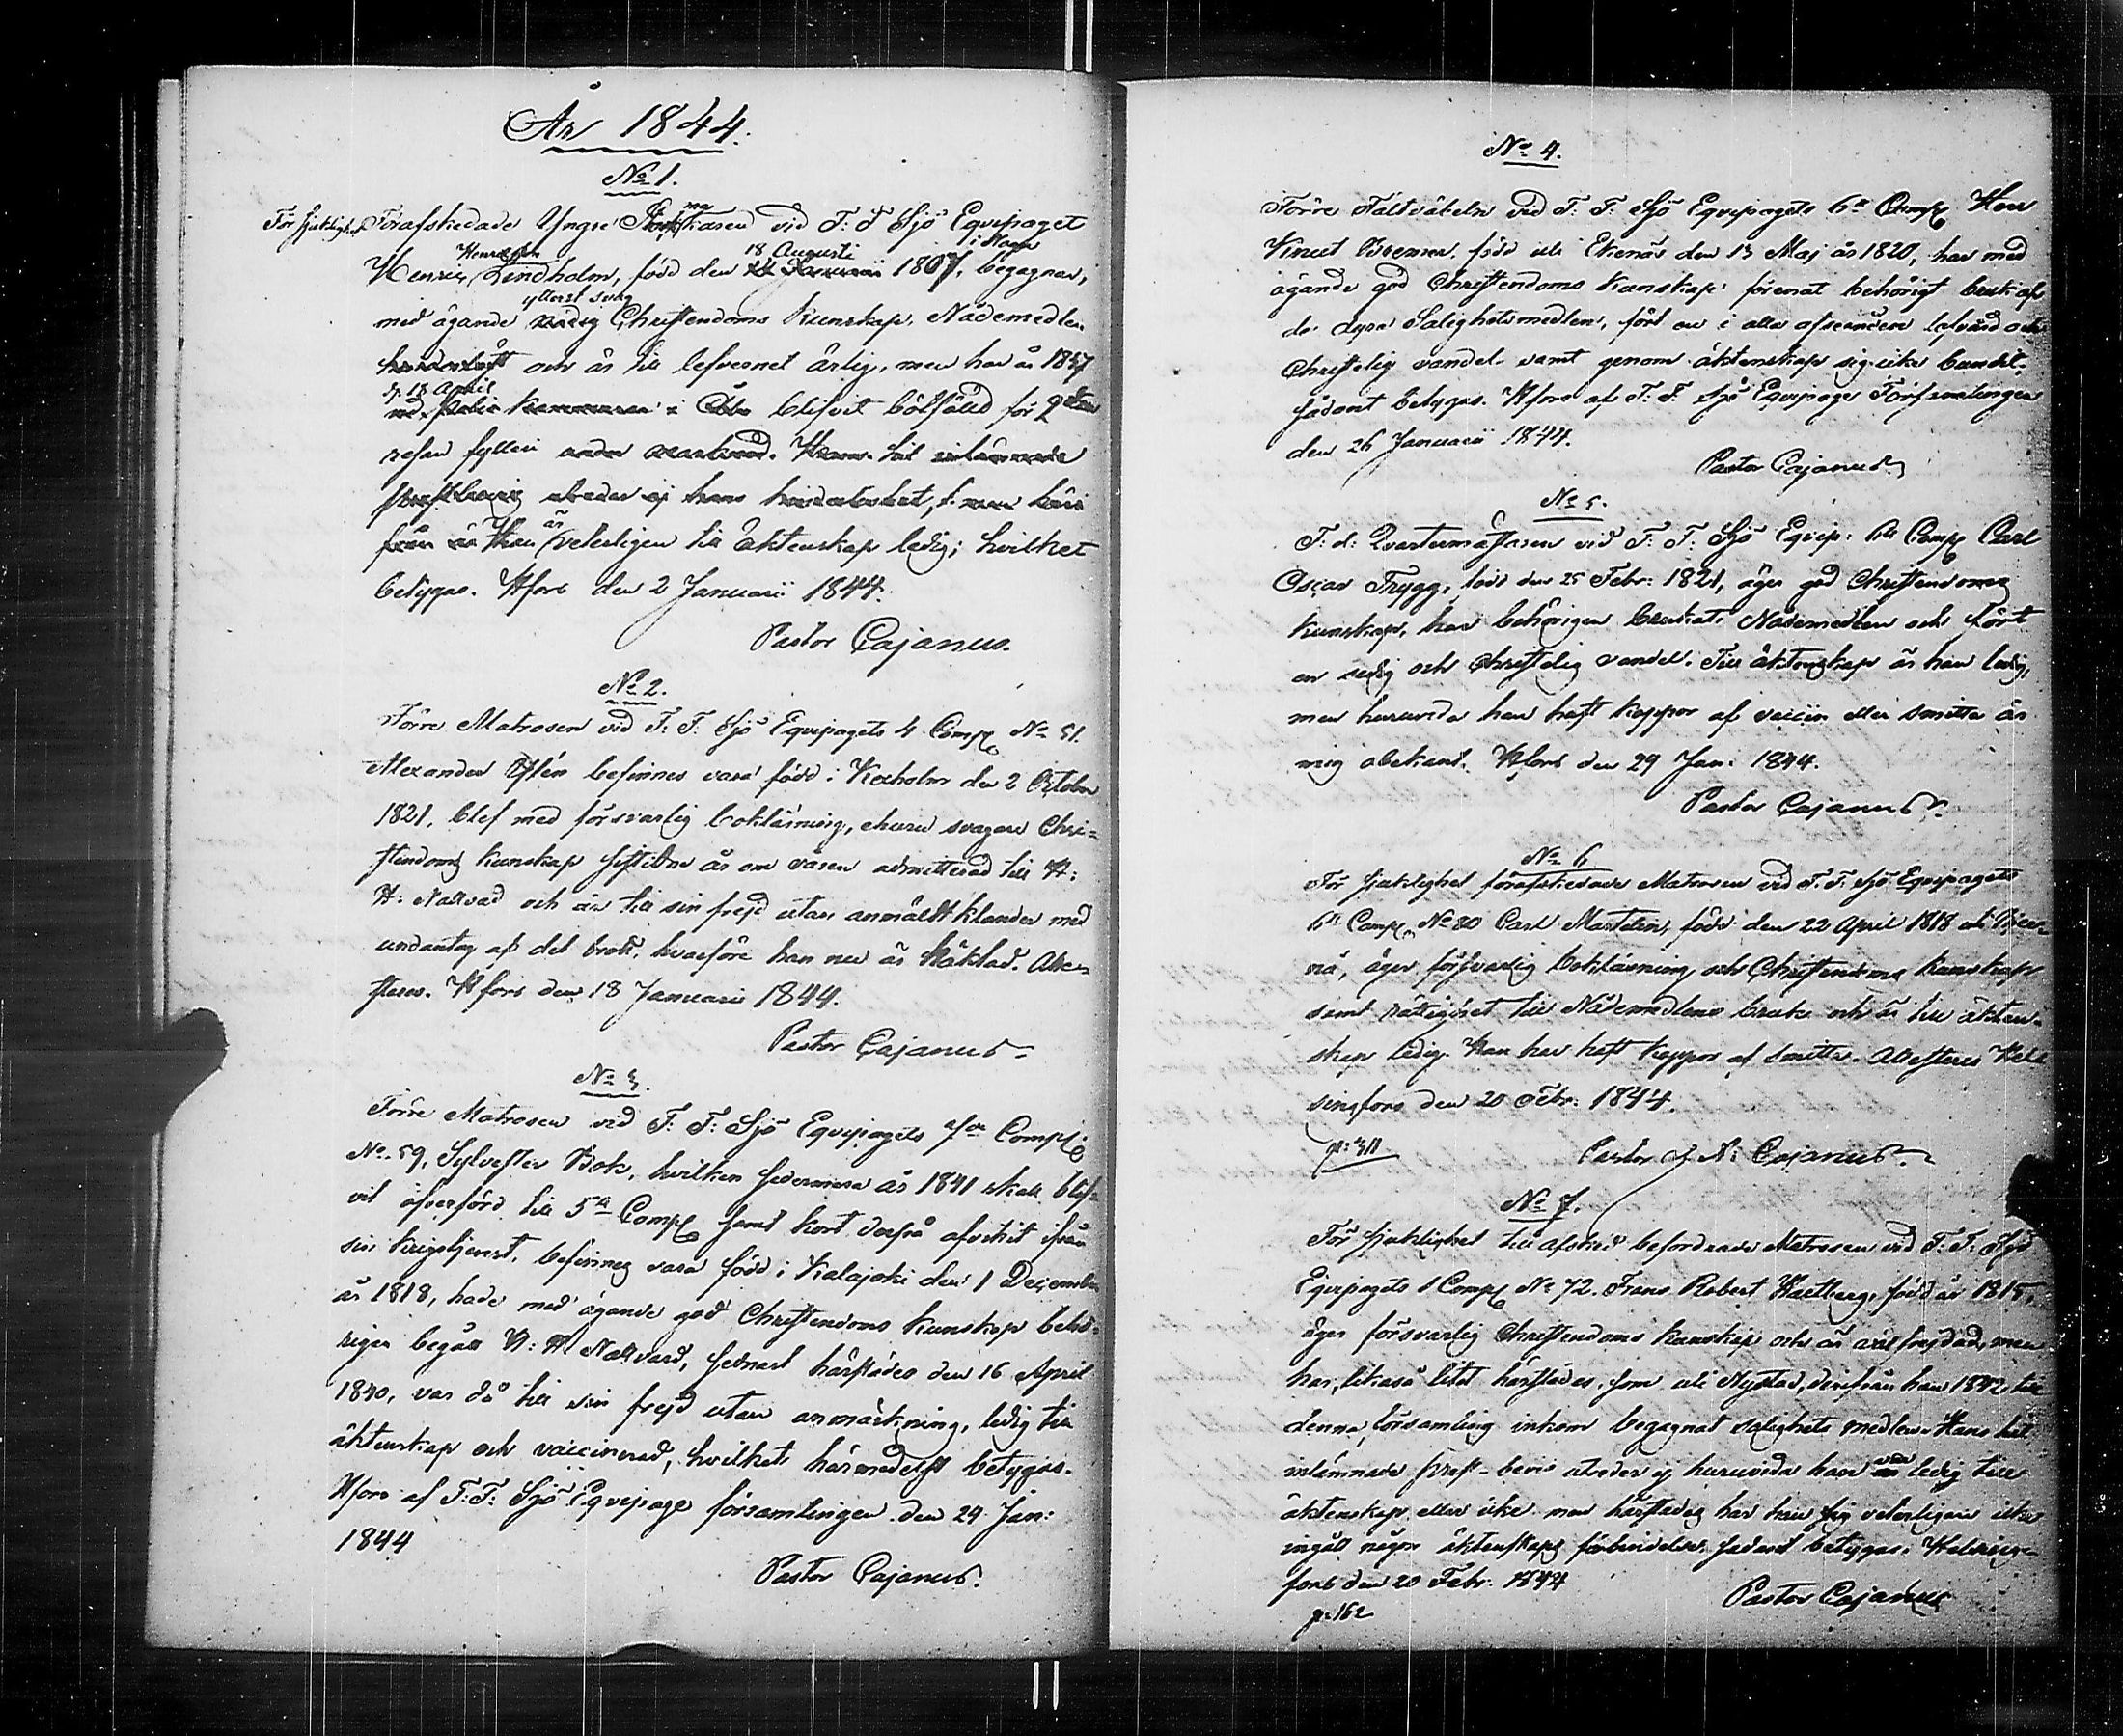 År 1844.
No 1.
För sjuklighet förafskedade Yngre vid F: F Sjö Equipaget
Henric Henricsson Lindholm, född den 18 Augusti 1807, i Nagu begagnar,
med ägande ytterst svag Christendoms Kunskap, Nådemedlen
och är till lefvernet ärlig, men har år 1837
d. 18 April blifvit bötfälld för 2
resan fylleri
Han är veterligen till äktenskap ledig; hvilket
betygas. Hfors den 2 Januarii 1844.
Pastor Cajanus.
No 2.
Förre Matrosen vid F: F: Sjö Equipagets 4 Comp No 51.
Alexander befinnes vara född i Kexholm den 2 October
1821, blef med försvarlig bokläsning, ehuru svagare Chri=
stendoms kunskap sistledne år om våren admitterad till H:
H: Nattvard och är till sin frejd utan anmäldt klander med
undantag af det brott, hvarföre han nu är häktad. Atte=
steras. Hfors den 18 Januarii 1844.
Pastor Cajanus
No 3.
Förre Matrosen vid F: F: Sjö Equipagets Comp
No 59, Sylvester Bok, hvilken sedermera år 1841 skall blif=
vit öfverförd till 5te Comp samt kort derpå afvikit ifrån
sin krigstjenst, befinnes vara född i Kalajoki den 1 December
år 1818, hade med ägande god Christendoms kunskap behö=
rigen begått H: H Nattvard, sednast härstädes den 16 April
1840, var då till sin frejd utan anmärkning, ledig till
äktenskap och vaccinerad, hvilket härmedelst betygas.
Hfors af F: F: Sjö Equipage församlingen den 24 Jan:
1844
Pastor Cajanus.
No 4.
Förre Fältväbeln vid F: F: Sjö Equipagets 6te Comp Herr
Knut Brenner, född uti Ekenäs den 13 Maj år 1820, har med
ägande god Christendoms kunskap förenat behörigt bruk af
de dyra Salighetsmedlen, fört en i alla afseenden lofvärd och
Christelig vandel samt genom äktenskap sig icke bundit.
Sådant betygas. Hfors af F: F: Sjö Equipage Församlingen
den 26 Januarii 1844.
Pastor Cajanus
No 5.
F: d: Qvartermästaren vid F: F: Sjö Equip: 6te Comp Carl
Oscar Trygg, född den 25 Febr: 1821, äger god Christendoms
kunskap, har behörigen brukat Nådemedlen och fört
en sedig och Christelig vandel. Till äktenskap är han ledig,
men huruvida han haft koppor af vaccin eller smitta är
mig obekant. Hfors den 29 Jan: 1844.
Pastor Cajanus
No 6
För sjuklighet förafskedade Matrosen vid F. F. Sjö Equipagets
6te Comp No 80 Carl Martelin, född den 22 April 1818 uti
äger försvarlig bokläsning och Christendoms kunskap
samt rättighet till Nådemedlens bruk och är till äkten=
skap ledig. Han har haft koppor af smitta. Attesteras Hel
singfors den 20 Febr: 1844.
p: 311
Pastor Cajanus
No 7.
För sjuklighet till afsked befordrade Matrosen vid F: F: Sjö
Equipagets 1 Comp No 72. Frans Robert Hartberg, född år 1815,
äger försvarlig Christendoms kunskap och är väl frejdad, men
har, likaså litet härstädes, som uti Nystad, derifrån han 1842 till
denna församling inkom begagnat salighets medlen. Hans hit
inlämnade prest-bevis utreder ej huruvida han var ledig till
äktenskap eller icke men härstädes har han sig veterligen icke
ingått någon äktenskaps förbindelse. Sådant betygas. Helsing=
fors den 20 Febr. 1844
p: 162
Pastor Cajanus